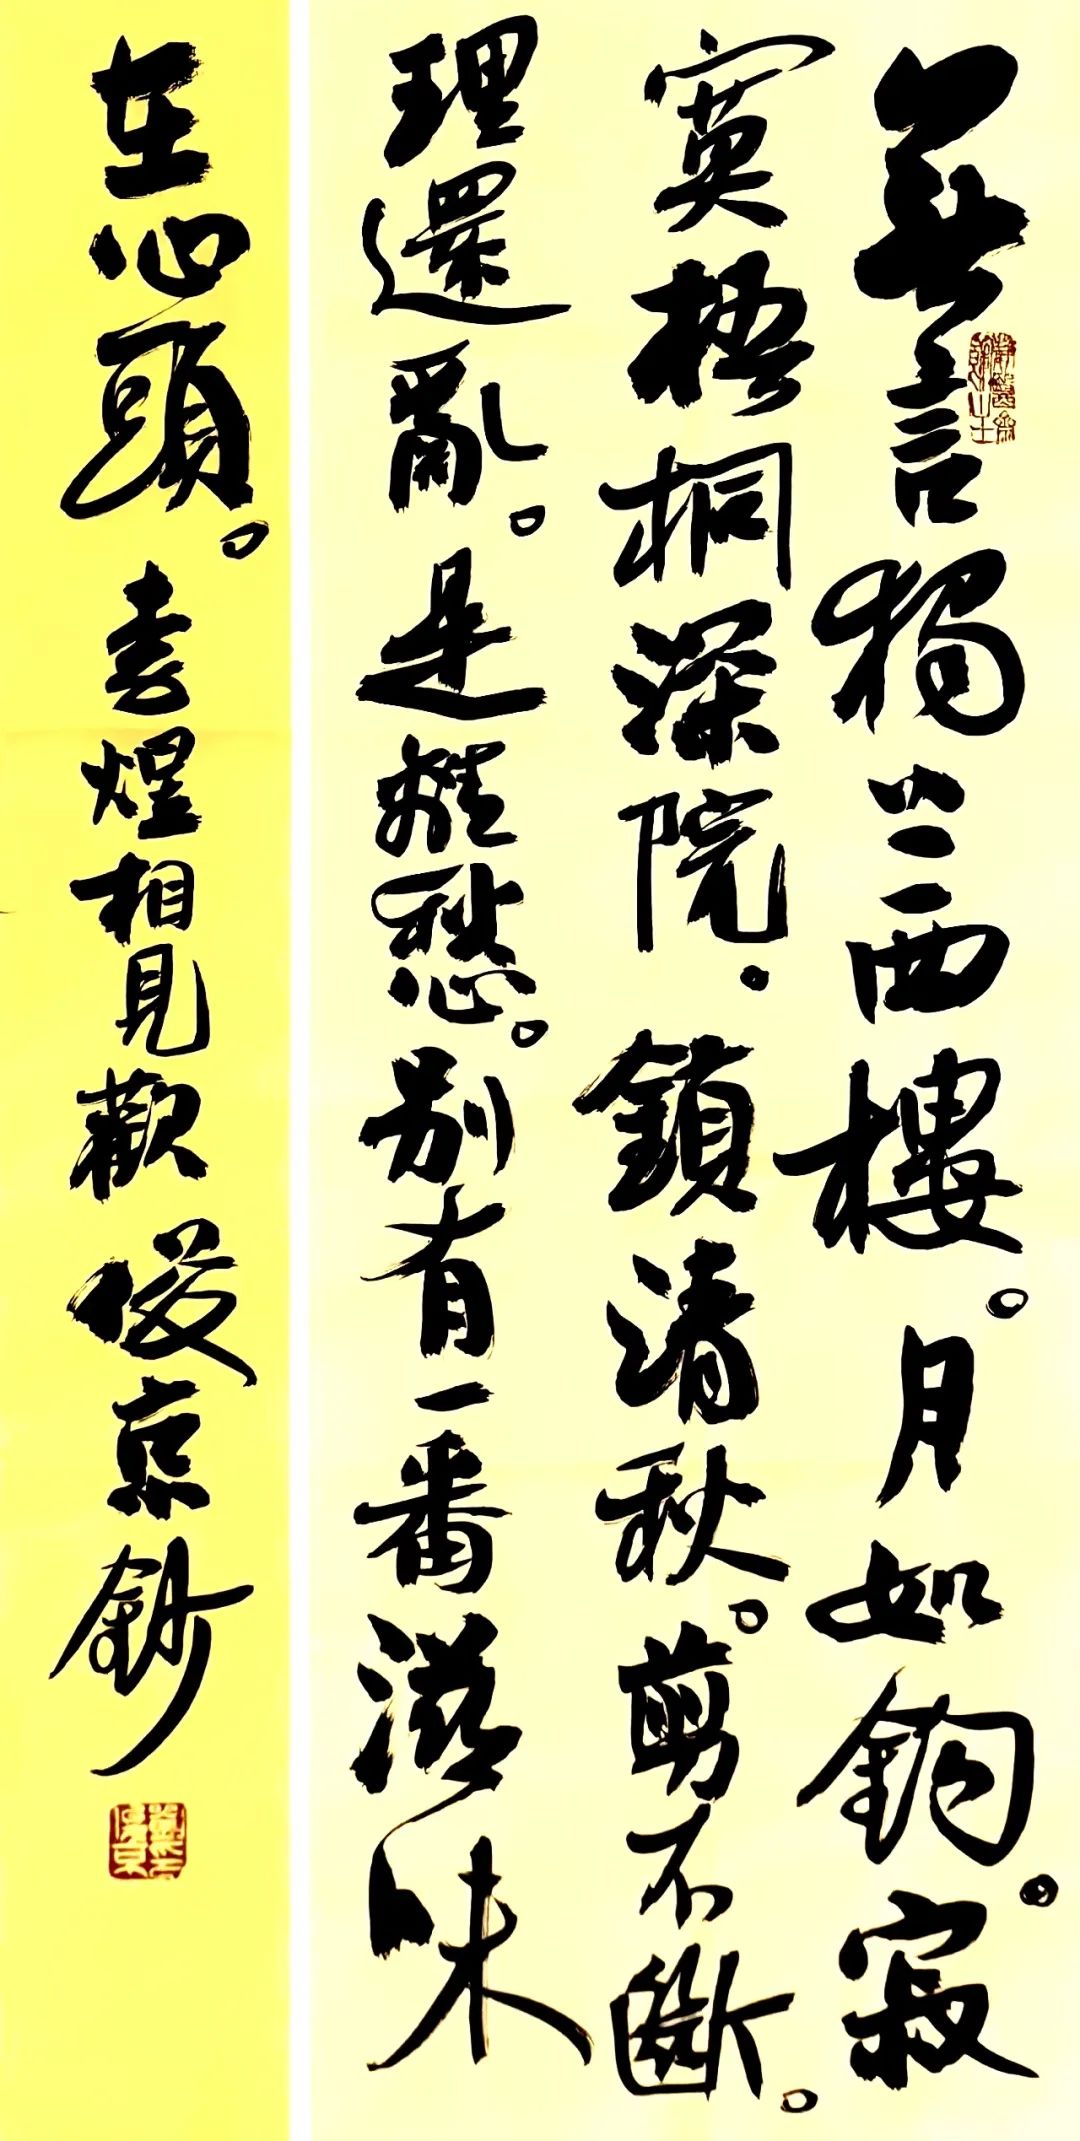 無言獨上西樓。月如鉤。寂
寞梧桐深院.鎖清秋。剪不斷。
理還亂。是離愁。别有一番滋味
在心頭。李煜相見歡 俊京鈔